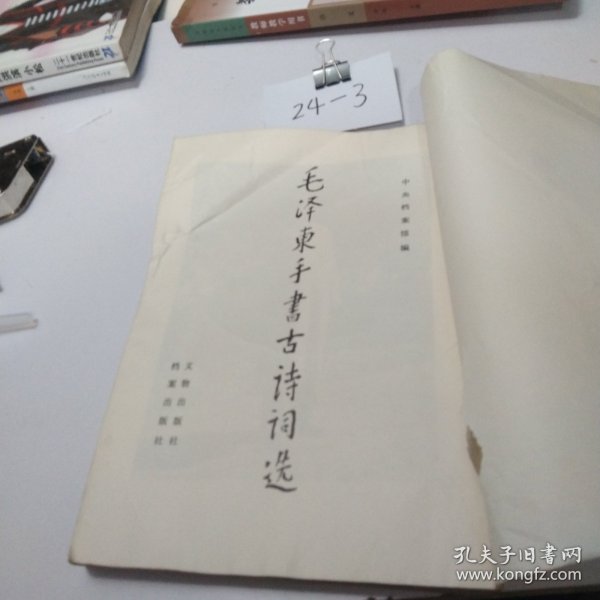 24-3
中央档案馆编
毛泽东手書古诗词选
文物出版社
档案出版社
孔夫子旧書网
www.kongfz.com